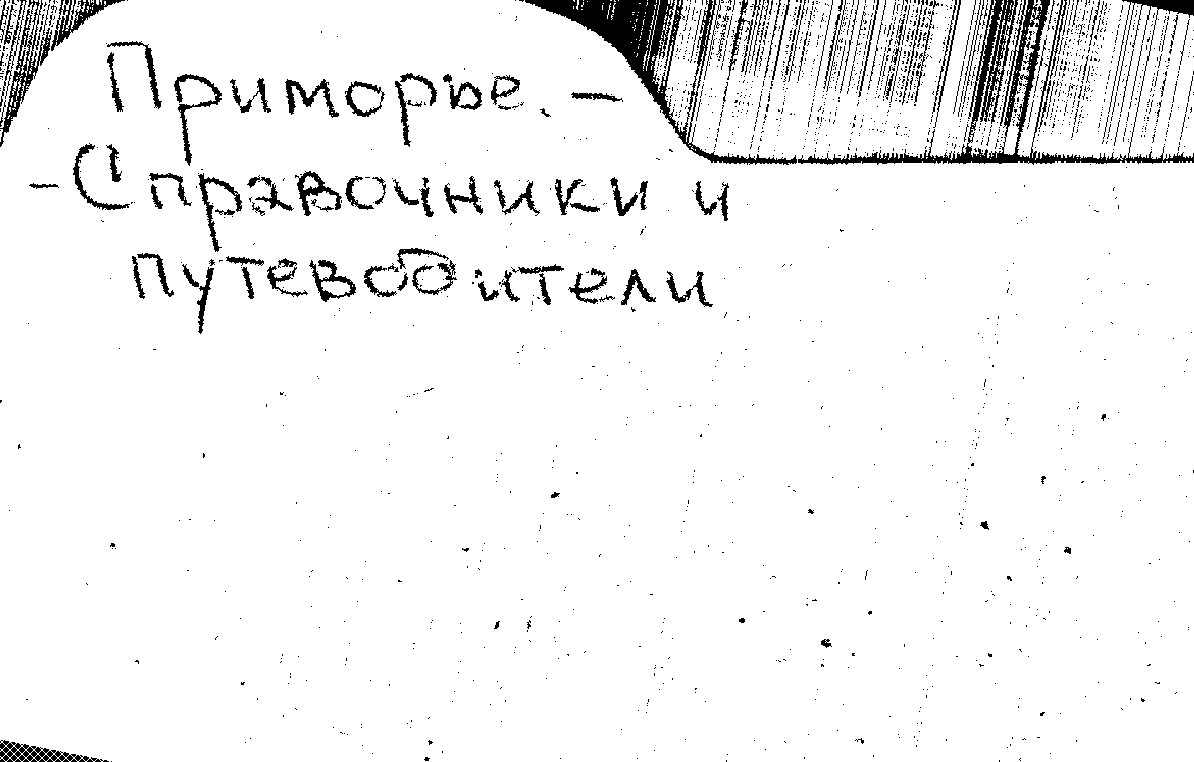 Приморье. –
– Справочники и
путеводители